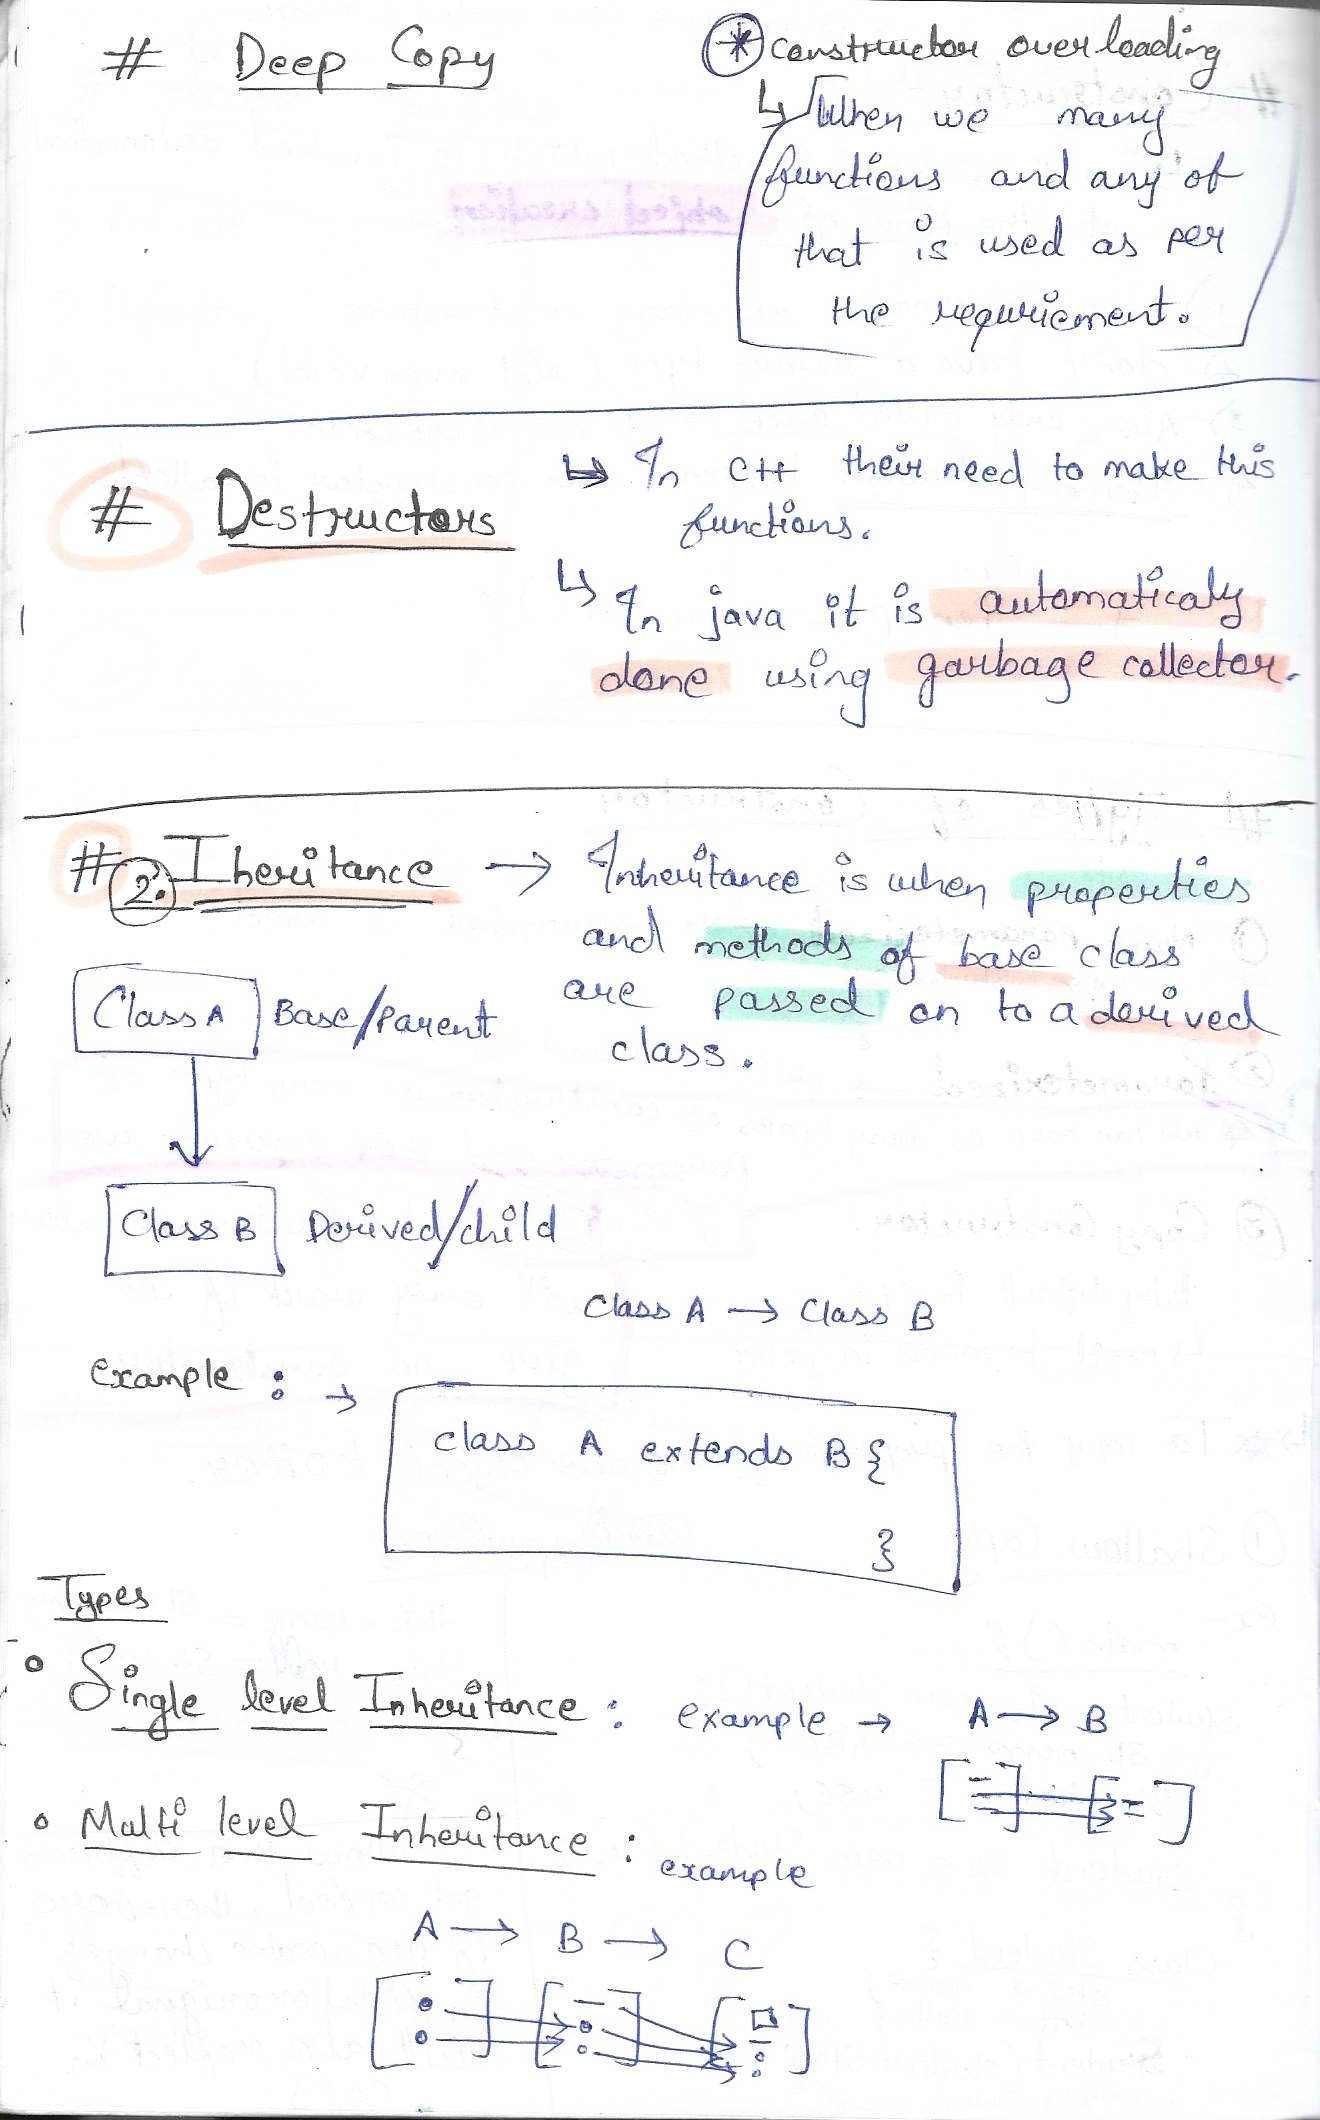 # Deep Copy
* constructor overloading
↳ When we many
functions and any of
that is used as per
the requriement.
# Destructors
↳ In C++ their need to make this
functions.
↳ In java it is automaticaly
done using garbage collector.
# 2. Iheritance → Inheritance is when properties
and methods of base class
are passed on to a derived
class.
Class A Base/Parent
Class B Derived/child
Class A → Class B
example : →
class A extends B {
}
Types
• Single level Inheritance : example → A → B
• Multi level Inheritance : example
A → B → C